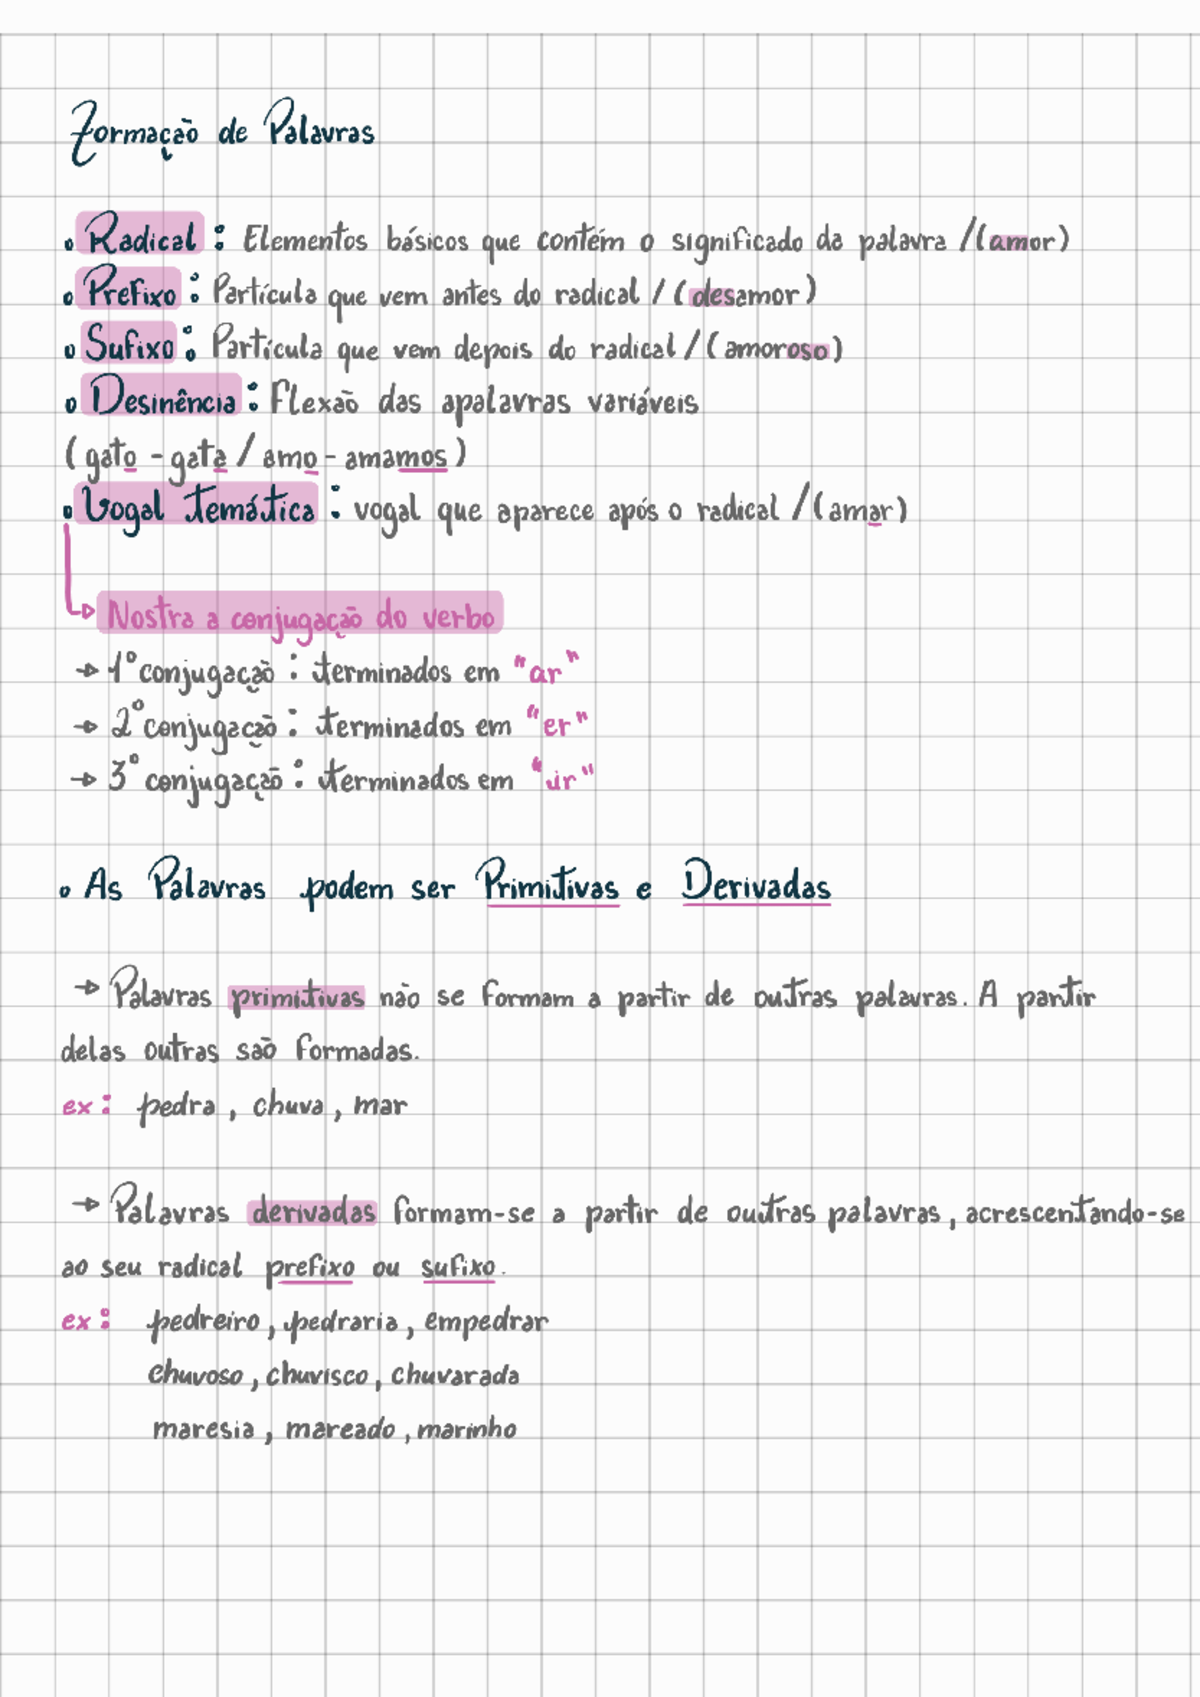 Formação de Palavras
• Radical : Elementos básicos que contém o significado da palavra / (amor)
• Prefixo : Partícula que vem antes do radical / (desamor)
• Sufixo : Partícula que vem depois do radical / (amoroso)
• Desinência : Flexão das apalavras variáveis
(gato - gata / amo - amamos)
• Vogal temática : vogal que aparece após o radical / (amar)
Nostra a conjugação do verbo
→ 1º conjugação : terminados em "ar"
→ 2º conjugação : terminados em "er"
→ 3º conjugação : terminados em "ir"
• As Palavras podem ser Primitivas e Derivadas
→ Palavras primitivas não se formam a partir de outras palavras. A partir
delas outras são formadas.
ex: pedra, chuva, mar
→ Palavras derivadas formam-se a partir de outras palavras, acrescentando-se
ao seu radical prefixo ou sufixo.
ex: pedreiro, pedraria, empedrar
chuvoso, chuvisco, chuvarada
maresia, mareado, marinho